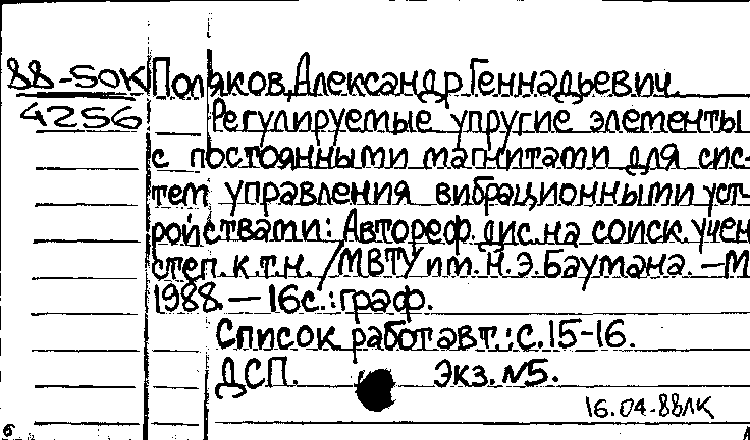 88-50К Поляков, Александр Геннадьевич.
4256 Регулируемые упругие элементы
с постоянными магнитами для сис-
тем управления вибрационными уст-
ройствами: Автореф. дис. на соиск. учен
степ. к.т.н. /МВТУ им. Н.Э.Баумана. —М
1988. — 16с.: граф.
Список работ авт.: с.15-16.
ДСП. Экз. №5.
16.04.88ЛК
б